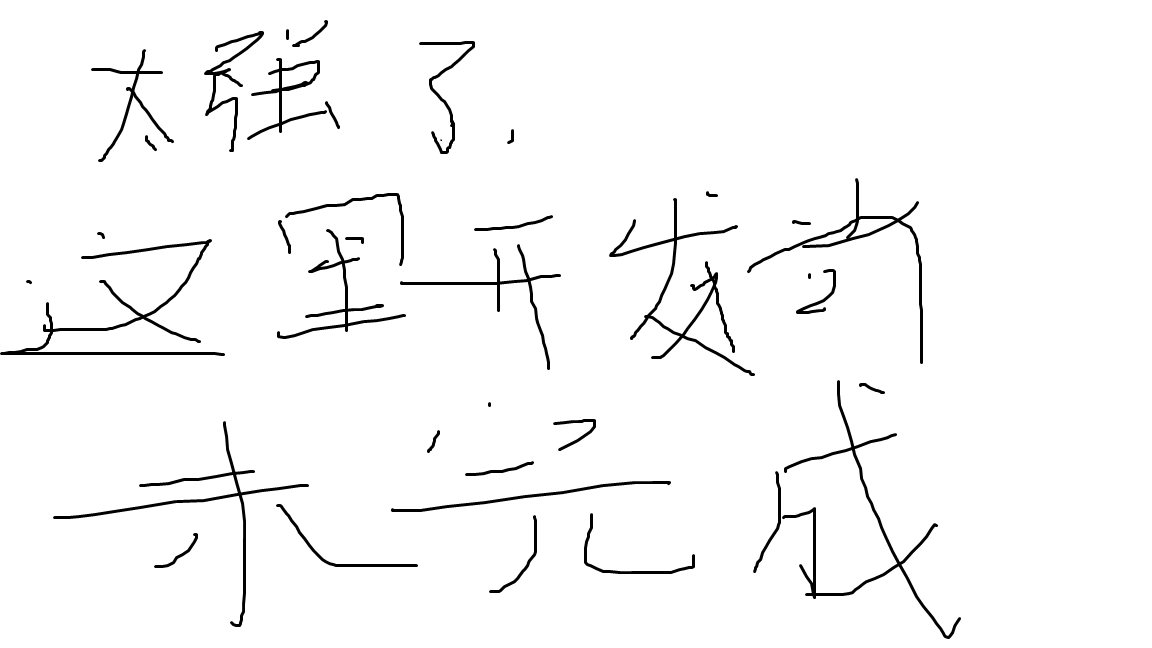 太强了,
这里开发尚
未完成